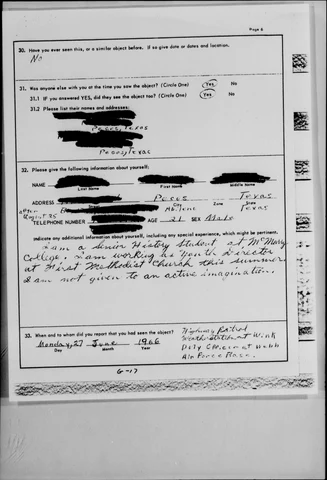 Page 6
30. Have you ever seen this, or a similar object before. If so give date or dates and location.
No
31. Was anyone else with you at the time you saw the object? (Circle One) Yes No
31.1 If you answered YES, did they see the object too? (Circle One) Yes No
31.2 Please list their names and addresses:
Pecos, Texas
Pecos, Texas
32. Please give the following information about yourself:
NAME
Last Name First Name Middle Name
ADDRESS Pecos Texas
City Zone State
after August 25 Abilene Texas
TELEPHONE NUMBER AGE 21 SEX Male
Indicate any additional information about yourself, including any special experience, which might be pertinent.
I am a Senior History Student at McMurry
College. I am working as Youth Director
at First Methodist Church this summer.
I am not given to an active imagination.
33. When and to whom did you report that you had seen the object?
Monday, 27 June 1966
Day Month Year
Highway Patrol
Weather Station at Wink
Duty Officer at Webb
Air Force Base.
G-17